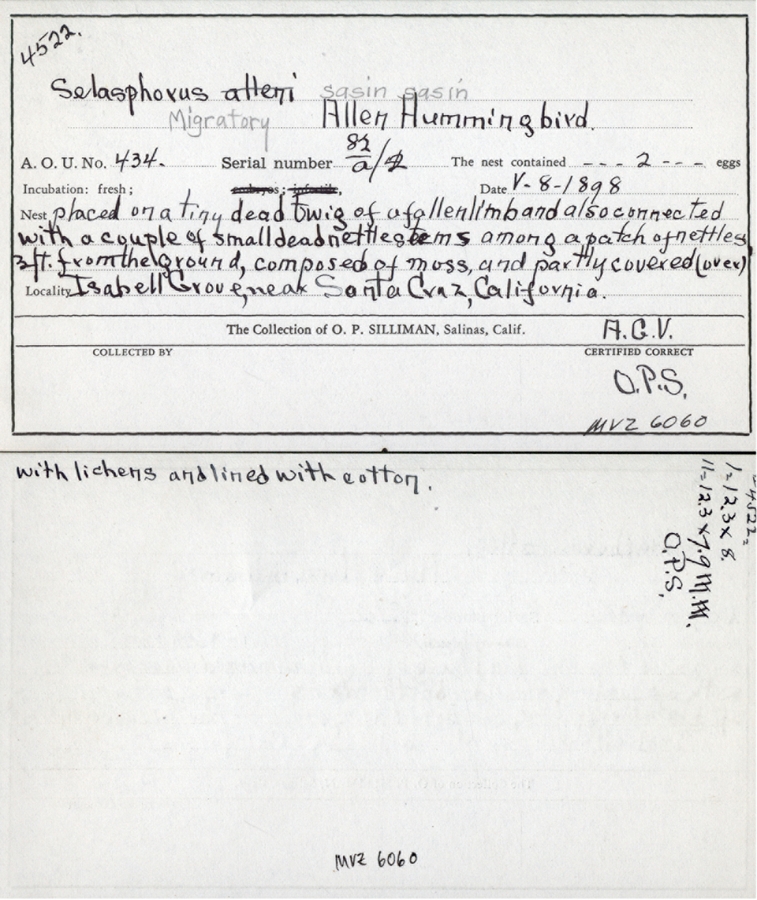 4522.
Selasphorus alleni sasin sasin
Migratory Allen Hummingbird.
A. O. U. No. 434. Serial number 82/a/2 The nest contained - - - 2 - - - eggs
Incubation: fresh; embryos; infertile, Date V-8-1898
Nest placed on a tiny dead twig of a fallen limb and also connected
with a couple of small dead nettle stems among a patch of nettles
3 ft. from the ground, composed of moss, and partly covered (over)
Locality Isabell Grove, near Santa Cruz, California.
The Collection of O. P. SILLIMAN, Salinas, Calif. A.G.V.
COLLECTED BY CERTIFIED CORRECT
O.P.S.
MVZ 6060
with lichens and lined with cotton.
-4522=
1=12.3 x 8.
11=12.3 x 7.9 M.M.
O.P.S.
MVZ 6060